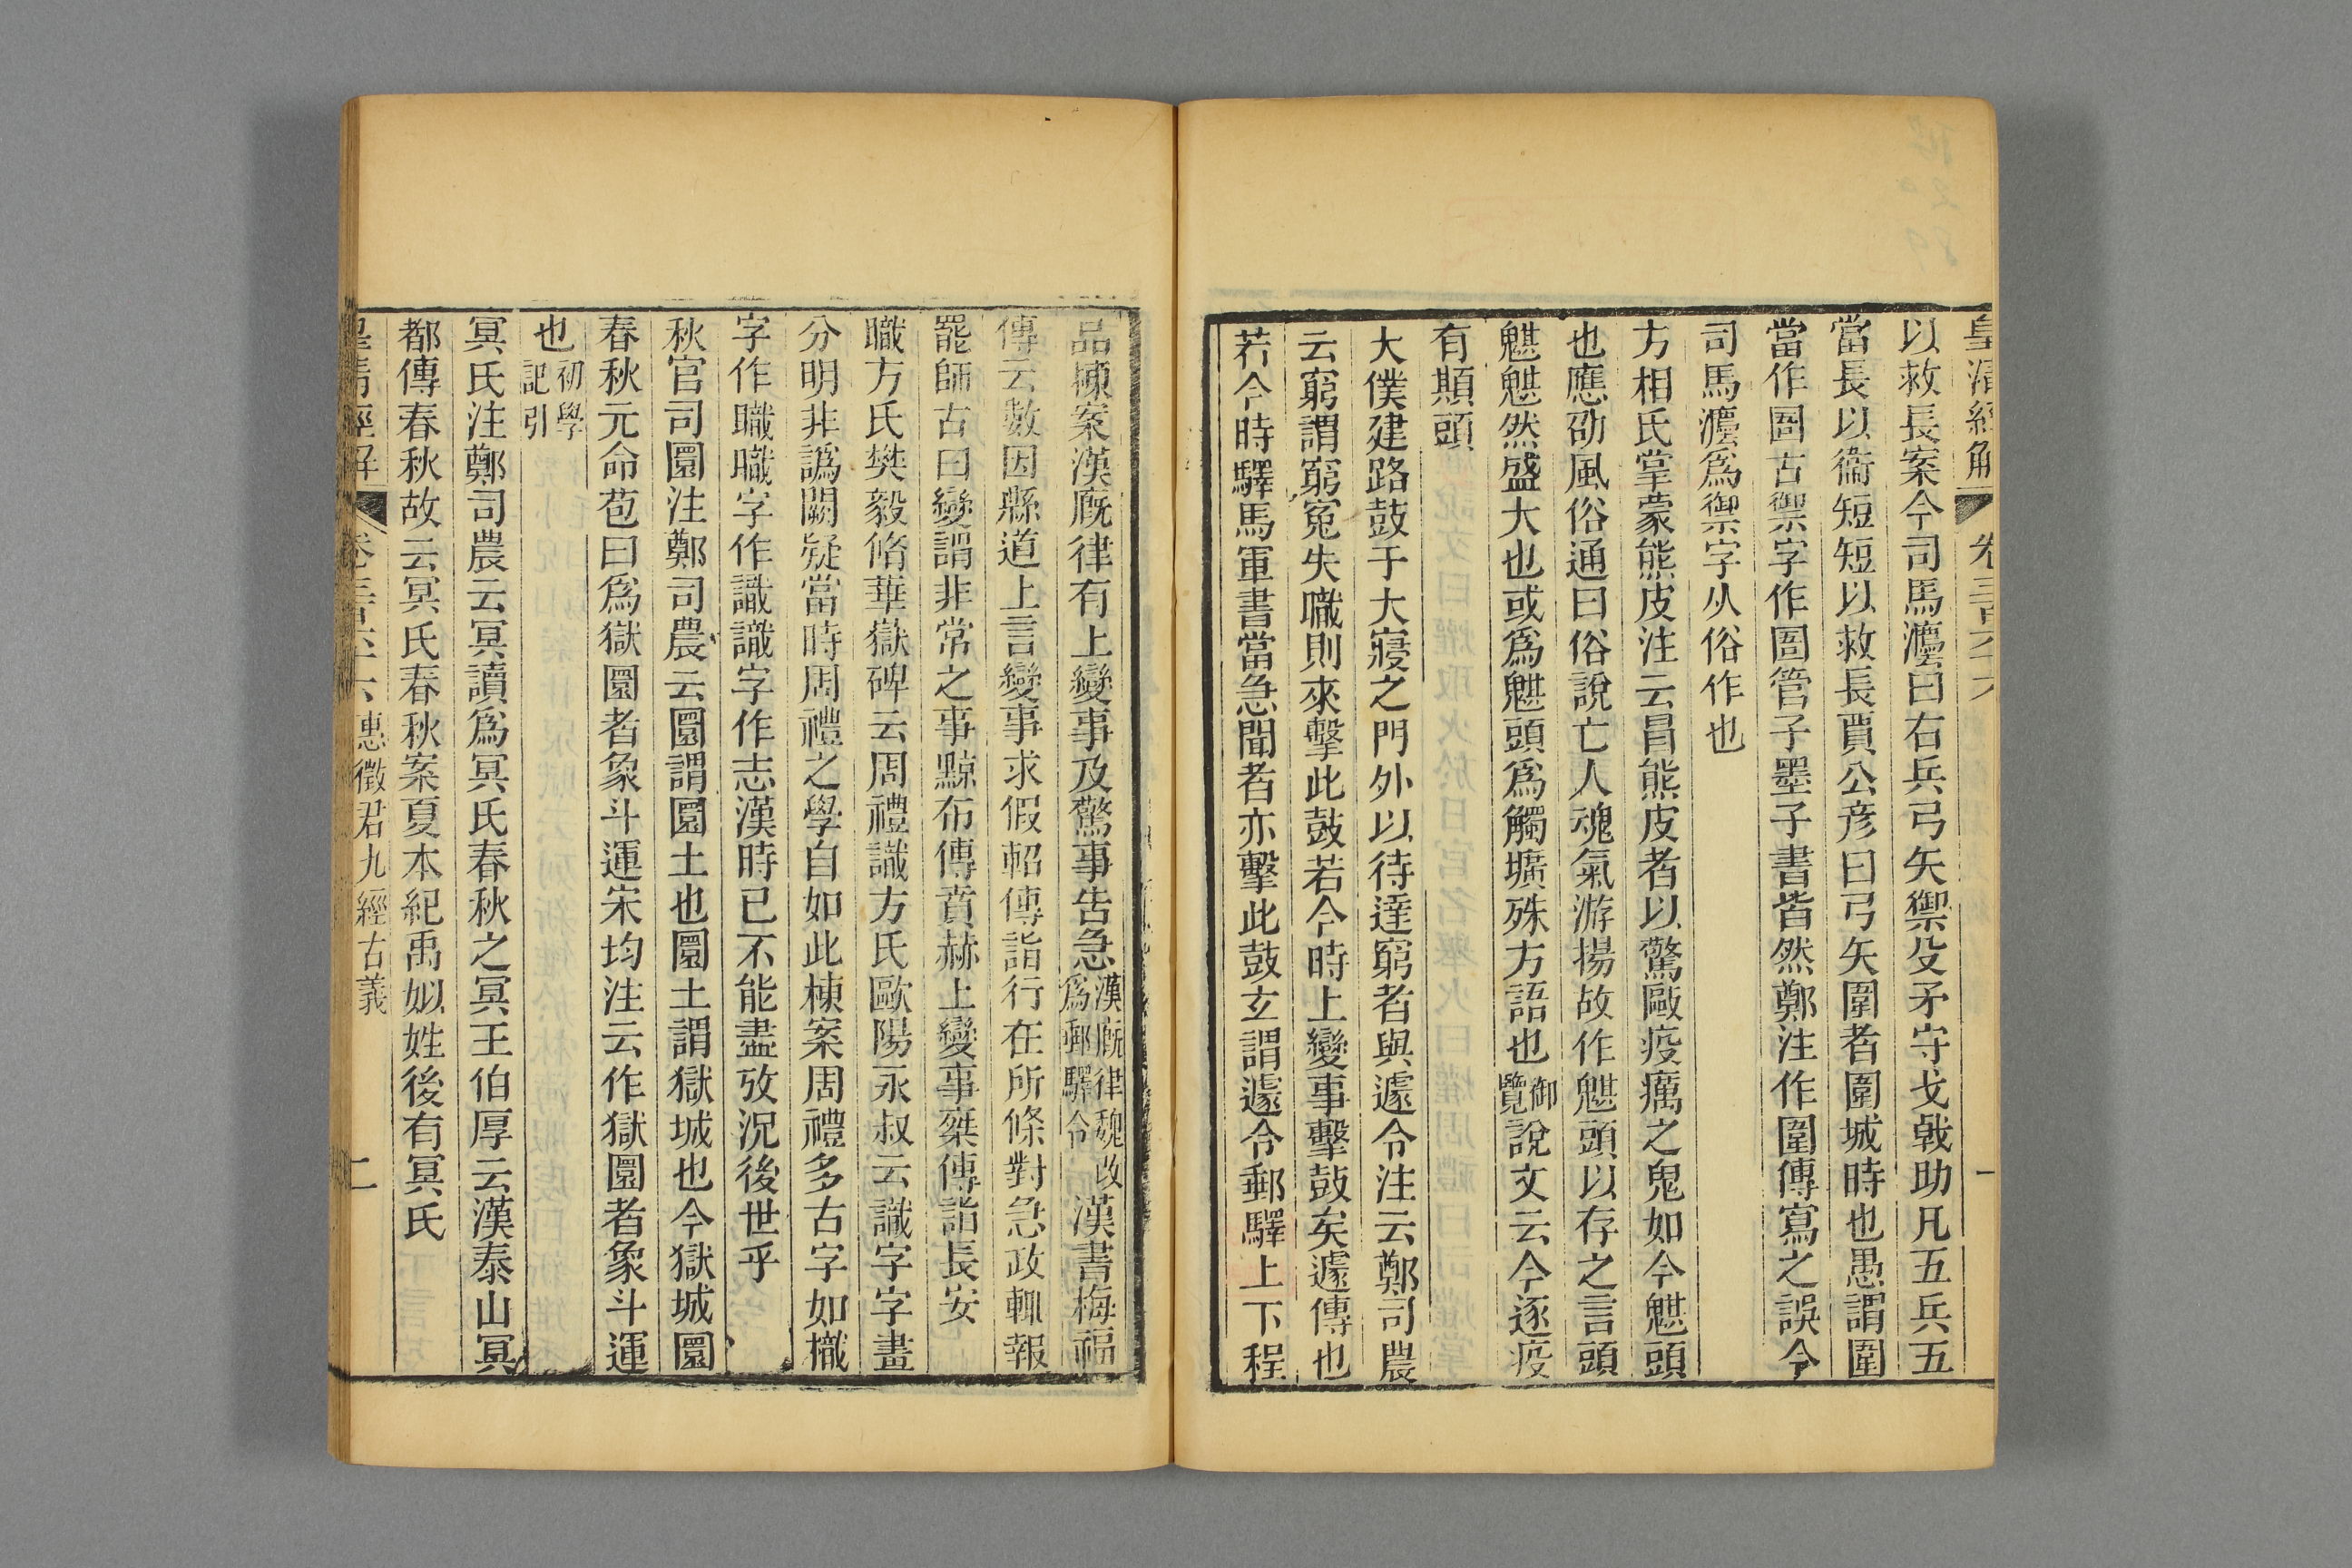 皇清經解 卷三百六十六 一
以救長案今司馬灋曰右兵弓矢禦殳矛守戈戟助凡五兵五
當長以衞短短以救長賈公彦曰弓矢圍者圍城時也愚謂圍
當作圄古禦字作圄管子墨子書皆然鄭注作圍傳寫之誤今
司馬灋爲禦字从俗作也
方相氏掌蒙熊皮注云冒熊皮者以驚敺疫癘之鬼如今魌頭
也應劭風俗通曰俗說亡人魂氣游揚故作魌頭以存之言頭
魌魌然盛大也或爲魌頭爲觸壙殊方語也御覽說文云今逐疫
有䫏頭
大僕建路鼓于大寢之門外以待達窮者與遽令注云鄭司農
云窮謂窮寃失職則來擊此鼓若今時上變事擊鼓矣遽傳也
若今時驛馬軍書當急聞者亦擊此鼓玄謂遽令郵驛上下程
品棟案漢厩律有上變事及驚事告急漢厩律魏改爲郵驛令漢書梅福
傳云數因縣道上言變事求假軺傳詣行在所條對急政輒報
罷師古曰變謂非常之事黥布傳賁赫上變事椉傳詣長安
職方氏樊毅脩華嶽碑云周禮識方氏歐陽永叔云識字字畫
分明非譌闕疑當時周禮之學自如此棟案周禮多古字如樴
字作職職字作識識字作志漢時已不能盡攷況後世乎
秋官司圜注鄭司農云圜謂圜土也圜土謂獄城也今獄城圜
春秋元命苞曰爲獄圜者象斗運宋均注云作獄圜者象斗運
也初學記引
冥氏注鄭司農云冥讀爲冥氏春秋之冥王伯厚云漢泰山冥
都傳春秋故云冥氏春秋案夏本紀禹姒姓後有冥氏
皇清經解 卷三百六十六 惠徵君九經古義 二